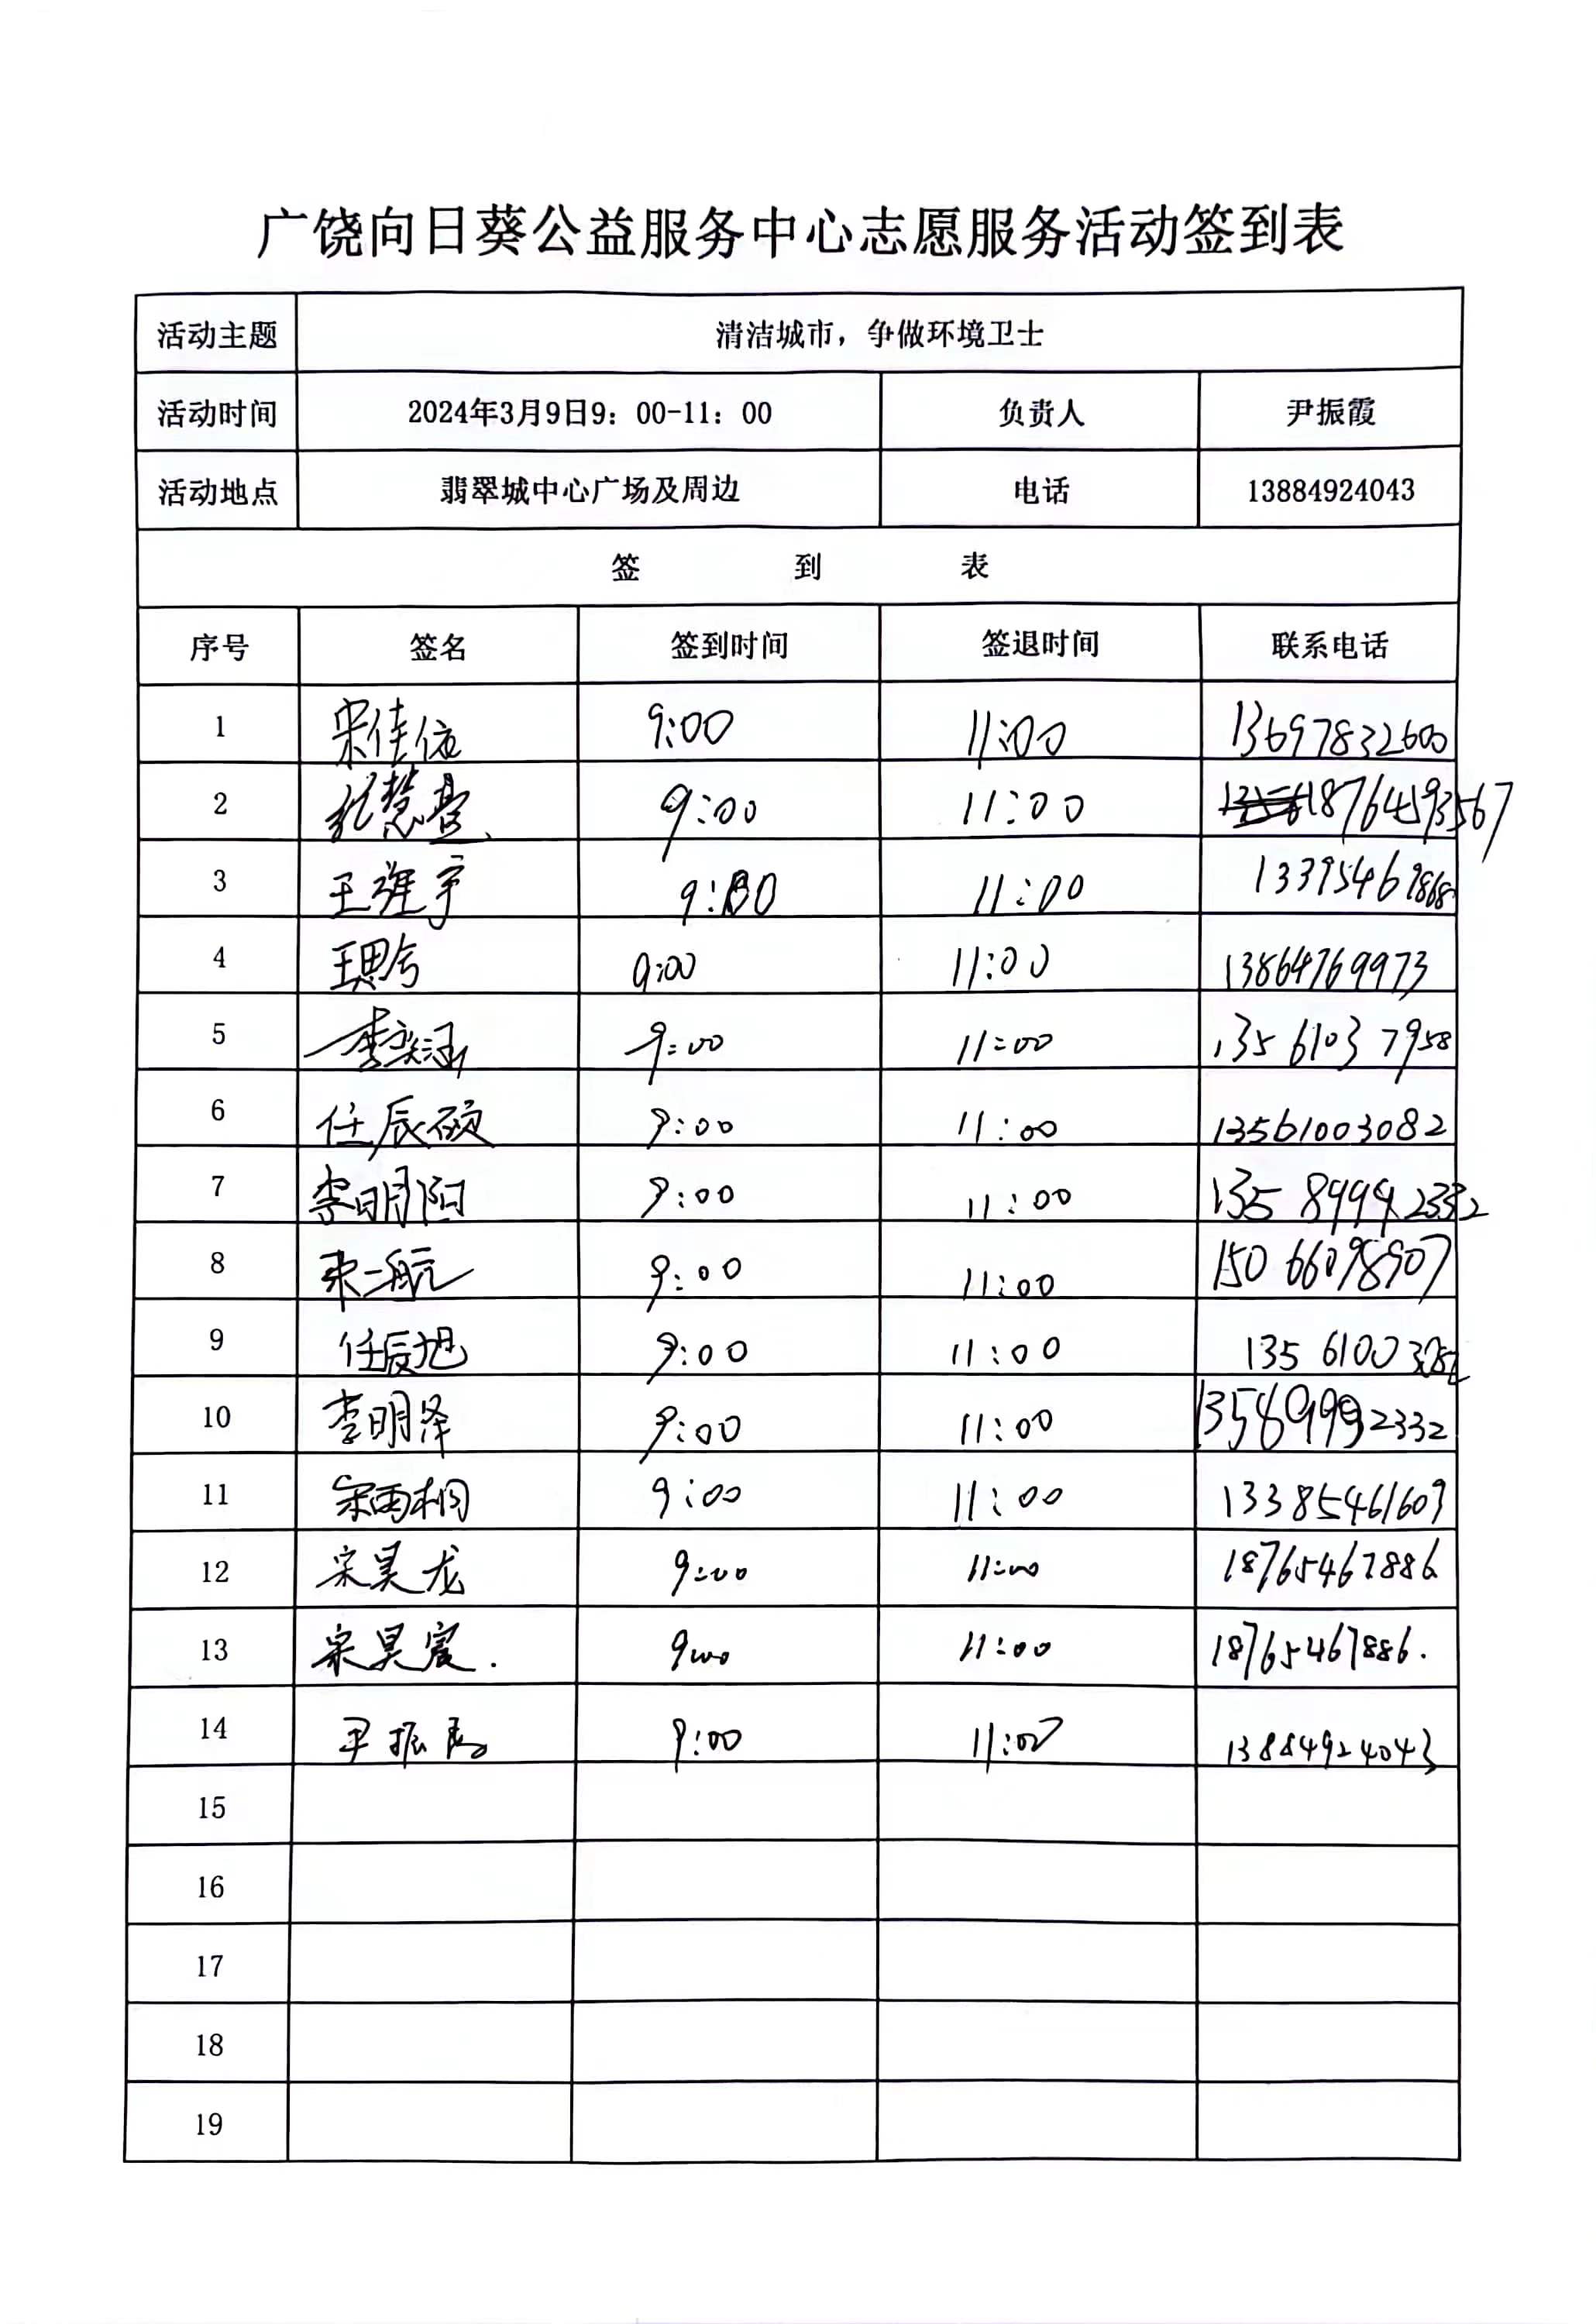 广饶向日葵公益服务中心志愿服务活动签到表
活动主题 清洁城市，争做环境卫士
活动时间 2024年3月9日9：00-11：00 负责人 尹振霞
活动地点 翡翠城中心广场及周边 电话 13884924043
签 到 表
序号 签名 签到时间 签退时间 联系电话
1 宋佳依 9:00 11:00 13697832600
2 张慧 9:00 11:00 18764593567
3 王 宇 9:00 11:00 13395469868
4 王思 9:00 11:00 13864769973
5 李奕涵 9:00 11:00 13561037958
6 任辰硕 9:00 11:00 13561003082
7 李明阳 9:00 11:00 13589992332
8 宋一航 9:00 11:00 15066098907
9 任辰旭 9:00 11:00 13561003082
10 李明泽 9:00 11:00 13589992332
11 宋雨桐 9:00 11:00 13385461609
12 宋昊龙 9:00 11:00 18765467886
13 宋昊宸. 9:00 11:00 18765467886.
14 尹振霞 9:00 11:00 13884924043
15
16
17
18
19